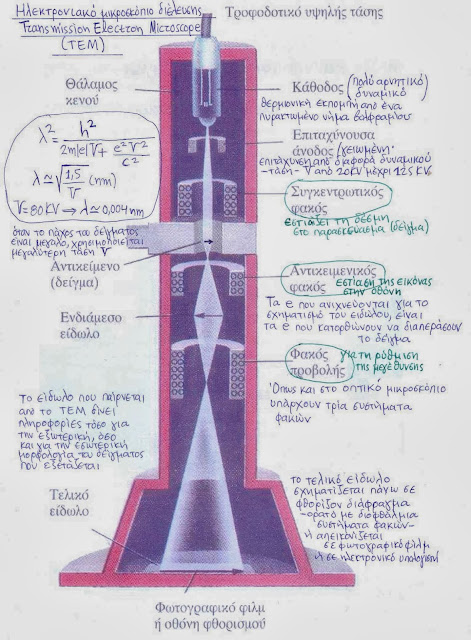 Ηλεκτρονιακό μικροσκόπιο διέλευσης
Transmission Electron Microscope
(TEM)
Τροφοδοτικό υψηλής τάσης
Θάλαμος
κενού
Κάθοδος (πολύ αρνητικό
δυναμικό)
θερμιονική εκπομπή από ένα
πυρακτωμένο νήμα βολφραμίου
Επιταχύνουσα
άνοδος (γειωμένη)
επιτάχυνση από διαφορά δυναμικού
-τάση- V από 20KV μέχρι 125 KV
λ² = h² / 2m|e|V + e²V²/c²
λ ≃ √1,5/V (nm)
V = 80KV → λ ≃ 0,004 nm
όταν το πάχος του δείγματος
είναι μεγάλο, χρησιμοποιείται
μεγαλύτερη τάση V
Συγκεντρωτικός
φακός
εστιάζει τη δέσμη
στο παρασκεύασμα (δείγμα)
Αντικείμενο
(δείγμα)
Αντικειμενικός
φακός εστίαση της εικόνας
στην οθόνη
Τα e που ανιχνεύονται για το
σχηματισμό του ειδώλου, είναι
τα e που κατορθώνουν να διαπεράσουν
το δείγμα
Ενδιάμεσο
είδωλο
Φακός για τη ρύθμιση
προβολής της μεγέθυνσης
Όπως και στο οπτικό μικροσκόπιο
υπάρχουν τρία συστήματα
φακών
Το είδωλο που παίρνεται
από το TEM δίνει
πληροφορίες τόσο για
την εξωτερική, όσο
και για την εσωτερική
μορφολογία του δείγματος
που εξετάζεται
Τελικό
είδωλο
το τελικό είδωλο
σχηματίζεται πάνω σε
φθορίζον διάφραγμα
-ορατό με διοφθάλμια
συστήματα φακών-
ή απεικονίζεται
σε φωτογραφικό φιλμ
ή σε ηλεκτρονικό υπολογιστή
Φωτογραφικό φιλμ
ή οθόνη φθορισμού